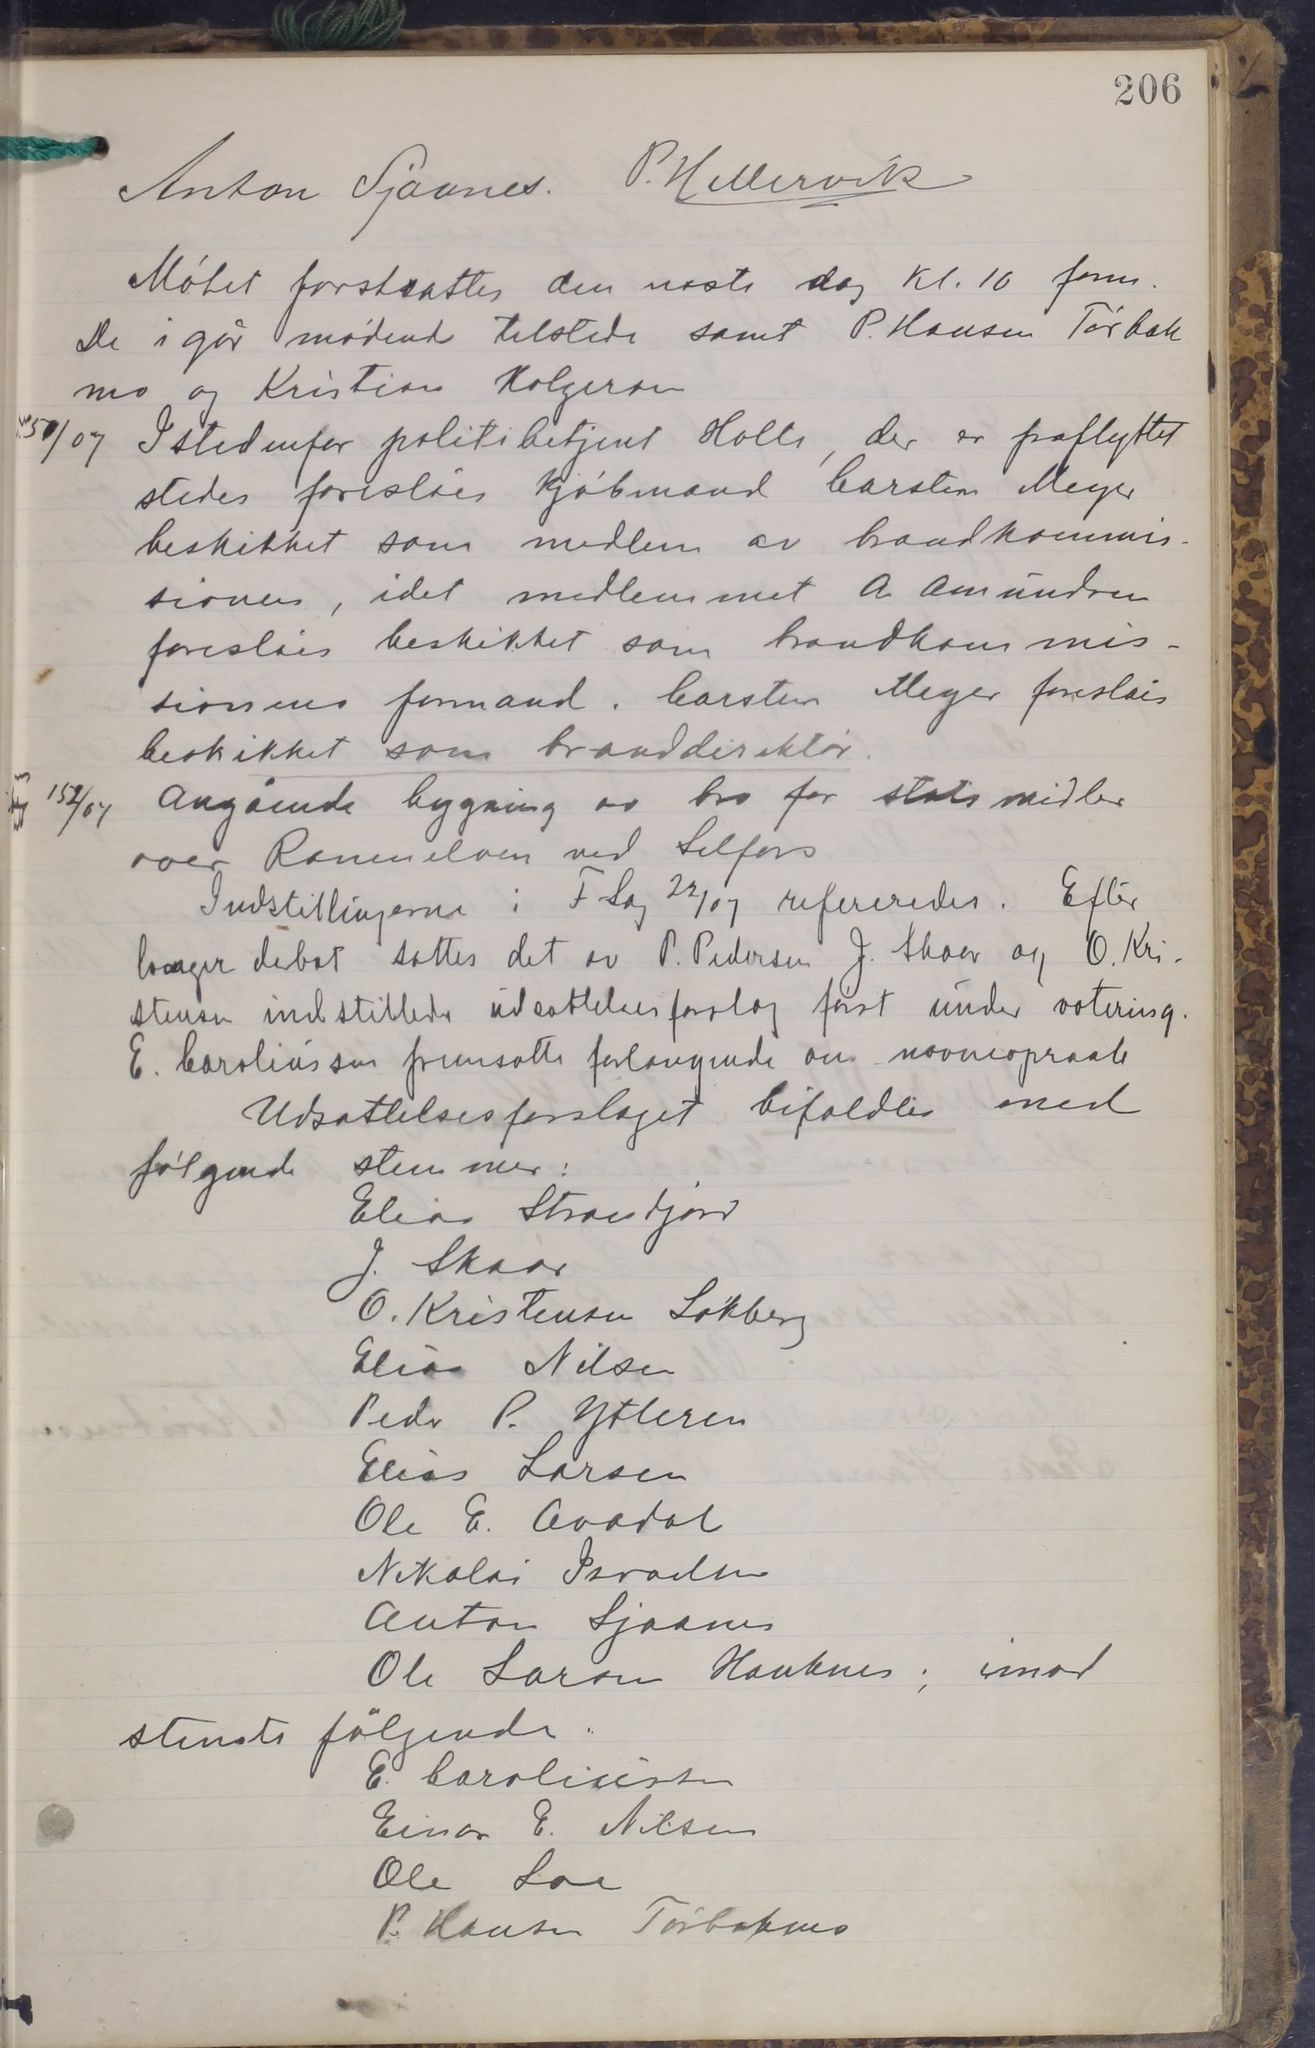 206
Anton Sjaanes. P. Hellervik
Mötet forstsattes den næste dag kl. 10 form.
De i går mödende tilstede samt P. Hansen Törbæk
mo og Kristian Holgersen
150/07 Istedenfor politibetjent Holte, der er fraflyttet
stedes foreslåes kjöbmand Carsten Meyer
beskikket som medlem av brandkommis-
sionen, idet medlemmet A. Amundsen
foreslåes beskikket som brandkommis-
sionens formand. Carsten Meyer foreslåes
beskikket som branddirektör.
152/07 Angående bygning av bro for statsmidler
over Ranenelven ved Selfors
Indstillingerne i F Sag 22/07 refereredes. Efter
længer debat sattes det av P. Pedersen J. Skaar og O. Kri-
stensen indstillede udsættelsesforslag först under votering.
E. Caroliussen fremsatte forlangende om navneopraab
Udsættelsesforslaget bifaldtes med
fölgende stemmer:
Elias Strandjord
J. Skaar
O. Kristensen Lökberg
Elias Nilsen
Peder P. Ytteren
Elias Larsen
Ole E. Avadal
Nikolai Israelsen
Anton Sjaanes
Ole Larsen Hauknes; imod
stemte fölgende:
E. Caroliussen
Einar E. Nilsen
Ole Loe
P. Hansen Törbækmo